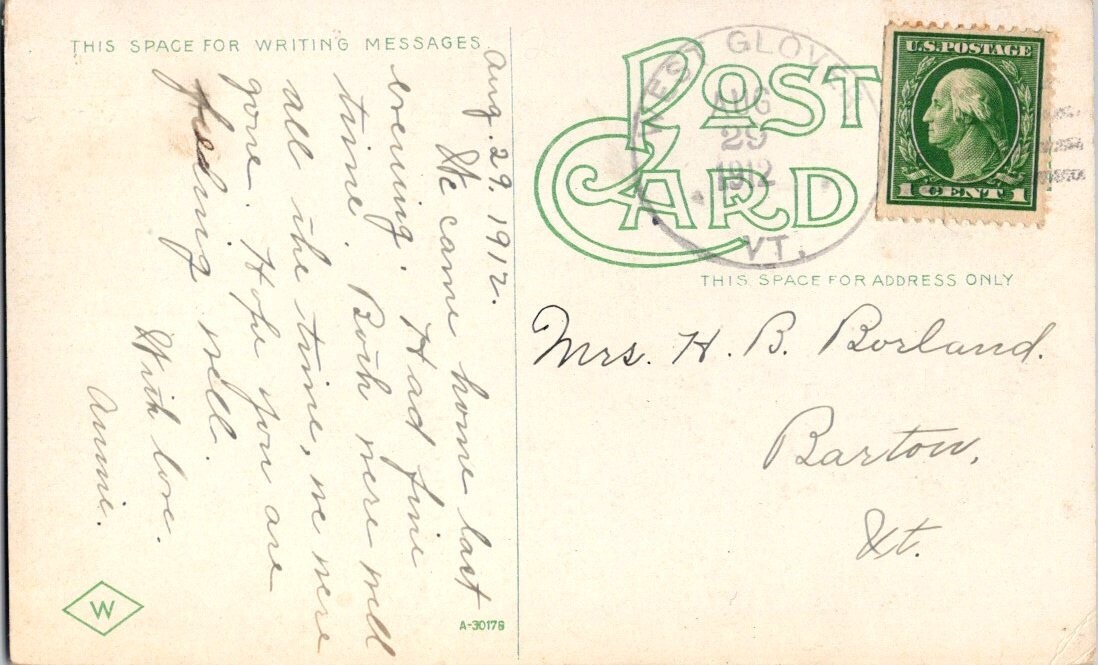 THIS SPACE FOR WRITING MESSAGES
Aug. 29. 1912.
We came home last
evening. Had fine
time. Both were well
all the time, we were
gone. Hope you are
feeling well.
With love.
Annie.
W
A-30178
POST
CARD
WEST GLOVER
AUG
29
1912
VT.
U.S. POSTAGE
1 CENT 1
THIS SPACE FOR ADDRESS ONLY
Mrs. H. B. Borland.
Barton,
Vt.